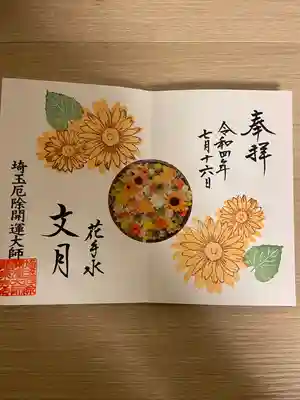 奉拝
令和四年
七月十六日
花手水
文月
埼玉厄除開運大師